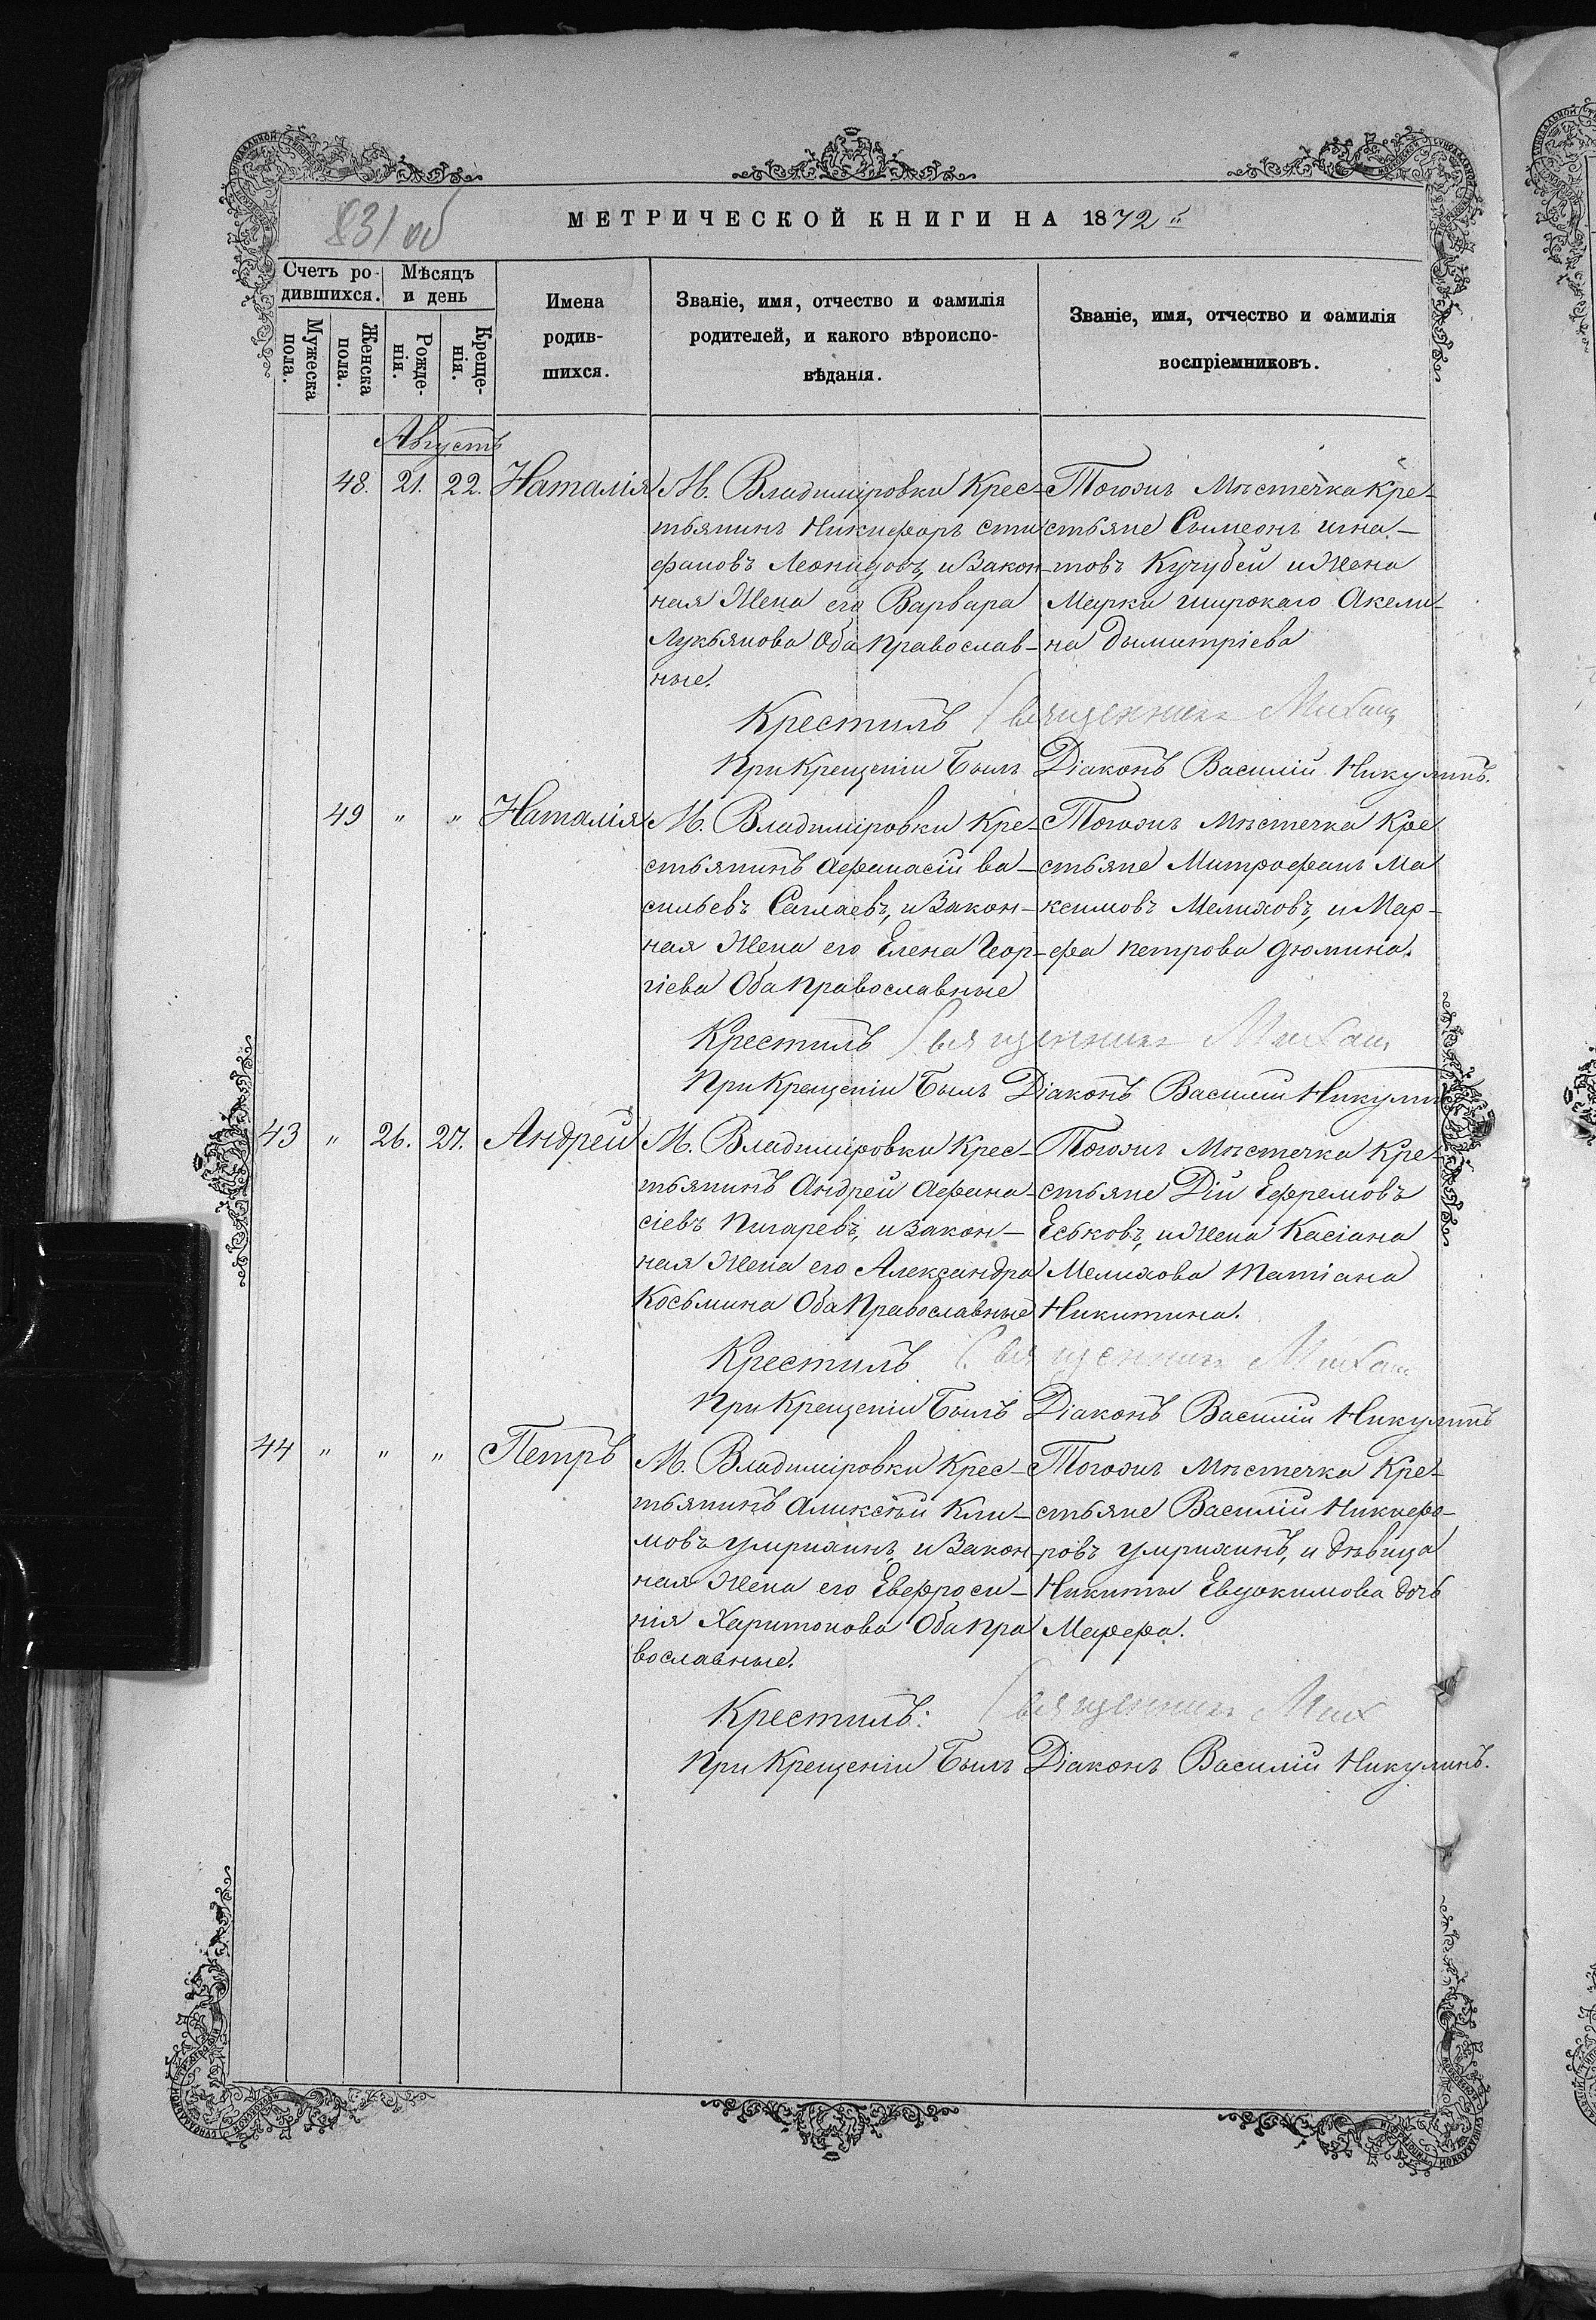 831 об
МЕТРИЧЕСКОЙ КНИГИ НА 1872 й
Счетъ ро-
дившихся.
Мужеска
пола.
Женска
пола.
Мѣсяцъ
и день
Рожде-
нія.
Креще-
нія.
Имена
родив-
шихся.
Званіе, имя, отчество и фамилія
родителей, и какого вѣроиспо-
вѣданія.
Званіе, имя, отчество и фамилія
воспріемниковъ.
Августъ
48. 21. 22. Наталія
М. Владиміровки Крес-
тьянинъ Никифоръ Сти
фановъ Леонидовъ, и Закон
ная Жена его Варвара
Лукьянова Оба православ-
ные.
Тогожъ Мѣстечка Кре-
стьяне Сѵмеонъ Игна-
товъ Кучубей и Жена
Марка Широкаго Акели-
на Димитріева
Крестилъ Священникъ Михаил
При Крещеніи Былъ Діаконъ Василій Никулинъ.
49 " " Наталія
М. Владиміровки Кре-
стьянинъ Афанасій Ва-
сильевъ Саглаевъ, и Закон-
ная Жена его Елена Геор-
гіева Оба православные
Тогожъ Мѣстечка Кре
стьяне Митрофанъ Ма
ксимовъ Мелиховъ, и Мар-
фа Петрова Дюмина.
Крестилъ Священникъ Михаил
При Крещеніи Былъ Діаконъ Василій Никулинъ
43 " 26. 27. Андрей
М. Владиміровки Крес-
тьянинъ Андрей Афана-
сіевъ Пигаревъ, и Закон-
ная Жена его Александра
Косьмина Оба Православные
Тогожъ Мѣстечка Кре-
стьяне Дій Ефремовъ
Еськовъ, и Жена Касіана
Мелихова Татіана
Никитина.
Крестилъ Священникъ Михаил
При Крещеніи Былъ Діаконъ Василій Никулинъ
44 " " " Петръ
М. Владиміровки Крес-
тьянинъ Аликсѣй Кли-
мовъ Умрихинъ, и Закон
ная Жена его Евфроси-
нія Харитонова Оба Пра
вославные.
Тогожъ Мѣстечка Кре-
стьяне Василій Никифо-
ровъ Умрихинъ, и дѣвица
Никиты Евдокимова дочь
Марфа.
Крестилъ: Священникъ Мих
При Крещеніи Былъ Діаконъ Василій Никулинъ.